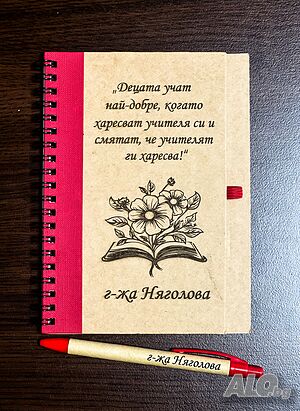 „Децата учат
най-добре, когато
харесват учителя си и
смятат, че учителят
ги харесва!“
г-жа Няголова
г-жа Няголова
ALO.bg